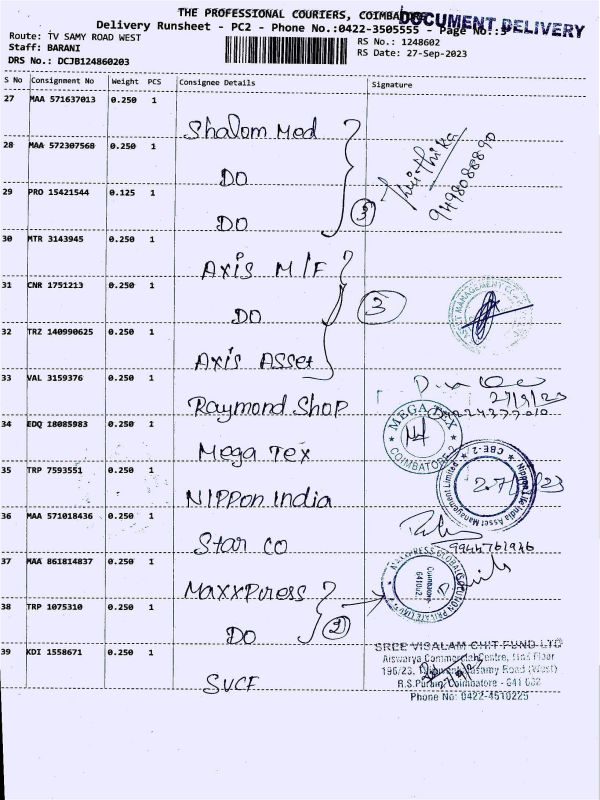 THE PROFESSIONAL COURIERS, COIMBATORE
DOCUMENT DELIVERY
Delivery Runsheet - PC2 - Phone No.:0422-3505555 - Page No.:3
Route: TV SAMY ROAD WEST
RS No.: 1248602
Staff: BARANI
RS Date: 27-Sep-2023
DRS No.: DCJB124860203
S No Consignment No Weight PCS Consignee Details Signature
27 MAA 571637013 0.250 1
Shalom Med
28 MAA 572307560 0.250 1
DO
29 PRO 15421544 0.125 1
DO
3
9498088890
30 MTR 3143945 0.250 1
Axis M/F
31 CNR 1751213 0.250 1
DO
3
32 TRZ 140990625 0.250 1
Axis Asset
33 VAL 3159376 0.250 1
27/9/23
Raymond Shop
34 EDQ 18085983 0.250 1
MEGA TEX
COIMBATORE-2
Mega Tex
35 TRP 7593551 0.250 1
Nippon Life India Asset Management Limited
CBE-2
Nippon India
36 MAA 571018436 0.250 1
Star Co
9944761946
37 MAA 861814837 0.250 1
Maxxpress
38 TRP 1075310 0.250 1
DO
2
39 KDI 1558671 0.250 1
SREE VISALAM CHIT FUND LTD
Aiswarya Commercial Centre, IInd Floor
R.S.Puram, Coimbatore - 641 002
Phone No: 0422-4510225
SVCF